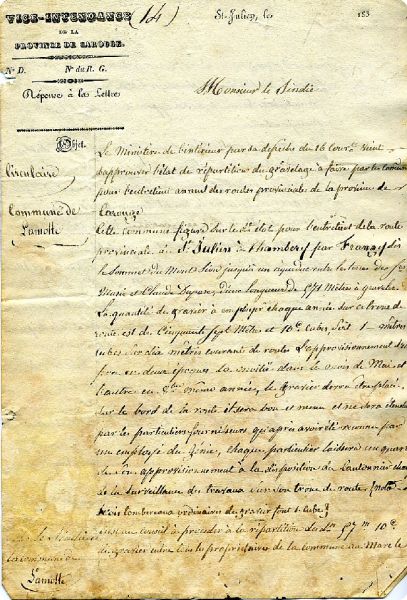 VICE-INTENDANCE
(14)
St. Julien, les 183
DE LA
PROVINCE DE CAROUGE.
N.º D. N.º du R. G.
Réponse à la Lettre
Monsieur le Sindic
Objet.
Circulaire
Commune de
Lamotte
Le Ministère de l'intérieur par sa dépêche du 16 cour.t vient
d'approuver l'état de répartition du gravelage à faire par les
pour l'entretien annuel des routes provinciales de la province de
Carouge.
Cette commune figure sur le d.t état pour l'entretien de la route
provinciale de St Julien à Chambéry par Frangy dès
le sommet du Mont Sion jusqu'à un aqueduc entre les terres des
et Claude d'une longueur de 571 mètres à graveler
La quantité de gravier à employer chaque année sur ce tronc de
route est de Cinquante sept Mètres et 10.e Cubes soit 1 mètre
cube par dix mètres courant de routes. L'approvisionnement
fera en deux époques la moitié dans le mois de Mai et
l'autre en 8bre même année, le gravier devra être placé
sur le bord de la route il sera bon et menu et ne sera étendu
par les particuliers fournisseurs qu'après avoir été reconnu par
un employé du génie, chaque particulier laissera un quart
de son approvisionnement à la disposition du Cantonnier
de la surveillance des travaux sur son tronc de route (nota
trois tombereaux ordinaires de gravier font 1. cube)
conseil à procéder à la répartition des d.ts 57 m 10.e
de gravier entre tous les propriétaires de la commune au marc le
la commune de
Lamotte